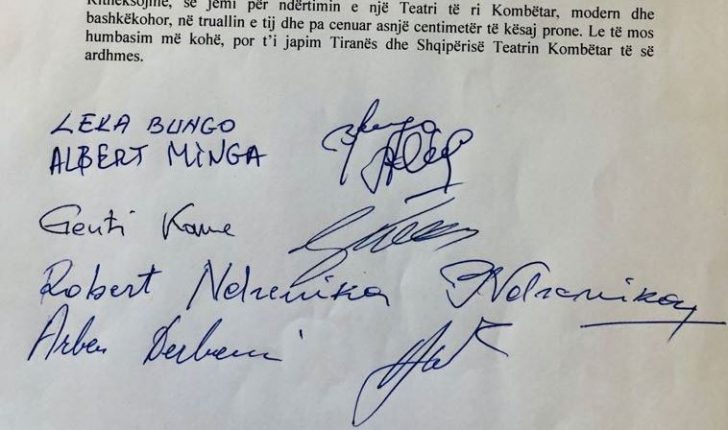 Ritheksojmë, se jemi për ndërtimin e një Teatri të ri Kombëtar, modern dhe
bashkëkohor, në truallin e tij dhe pa cenuar asnjë centimetër të kësaj prone. Le të mos
humbasim më kohë, por t'i japim Tiranës dhe Shqipërisë Teatrin Kombëtar të së
ardhmes.
LEKA BUNGO
ALBERT MINGA
Genti Kame
Robert Ndrenika Ndrenika
Arben Derhemi